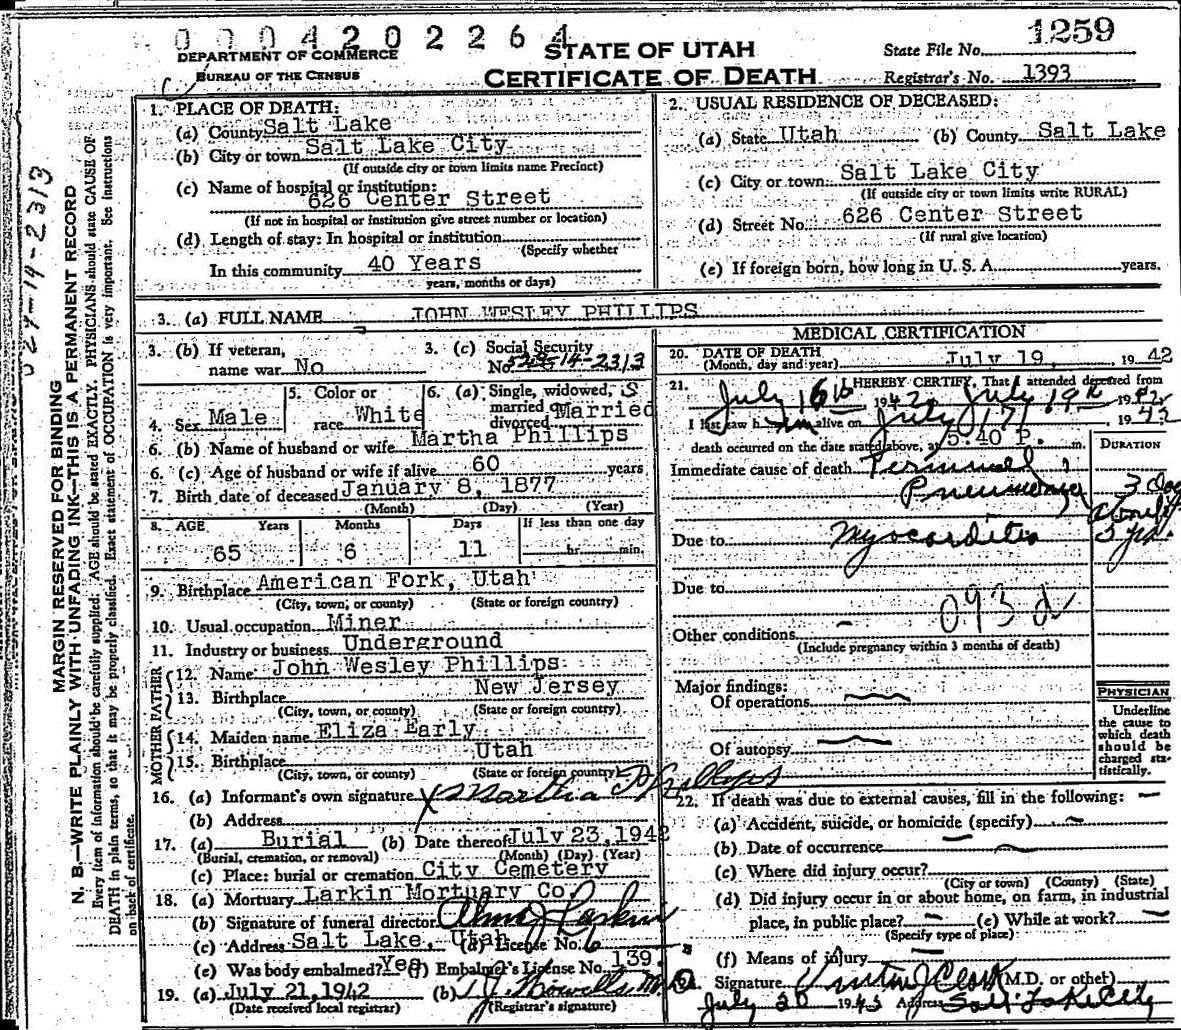 0004202264
DEPARTMENT OF COMMERCE
BUREAU OF THE CENSUS
STATE OF UTAH
CERTIFICATE OF DEATH
State File No. 1259
Registrar's No. 1393
MARGIN RESERVED FOR BINDING
N. B.—WRITE PLAINLY WITH UNFADING INK—THIS IS A PERMANENT RECORD
Every item of information should be carefully supplied. AGE should be stated EXACTLY. PHYSICIANS should state CAUSE OF
DEATH in plain terms, so that it may be properly classified. Exact statement of OCCUPATION is very important. See instructions
on back of certificate.
1. PLACE OF DEATH:
(a) County Salt Lake
(b) City or town Salt Lake City
(If outside city or town limits name Precinct)
(c) Name of hospital or institution:
626 Center Street
(If not in hospital or institution give street number or location)
(d) Length of stay: In hospital or institution
(Specify whether
In this community 40 Years
years, months or days)
2. USUAL RESIDENCE OF DECEASED:
(a) State Utah (b) County Salt Lake
(c) City or town Salt Lake City
(If outside city or town limits write RURAL)
(d) Street No. 626 Center Street
(If rural give location)
(e) If foreign born, how long in U. S. A. years.
3. (a) FULL NAME JOHN WESLEY PHILLIPS
3. (b) If veteran,
name war No
3. (c) Social Security
No. 529-14-2313
4. Sex Male
5. Color or
race White
6. (a) Single, widowed,
married or
divorced Married
6. (b) Name of husband or wife Martha Phillips
6. (c) Age of husband or wife if alive 60 years
7. Birth date of deceased January 8, 1877
(Month) (Day) (Year)
8. AGE Years Months Days If less than one day
65 6 11 hr. min.
9. Birthplace American Fork, Utah
(City, town, or county) (State or foreign country)
10. Usual occupation Miner
11. Industry or business Underground
FATHER
12. Name John Wesley Phillips
13. Birthplace New Jersey
(City, town, or county) (State or foreign country)
MOTHER
14. Maiden name Eliza Early
15. Birthplace Utah
(City, town, or county) (State or foreign country)
16. (a) Informant's own signature X Martha Phillips
(b) Address
17. (a) Burial (b) Date thereof July 23, 1942
(Burial, cremation, or removal) (Month) (Day) (Year)
(c) Place: burial or cremation City Cemetery
18. (a) Mortuary Larkin Mortuary Co.
(b) Signature of funeral director Alma J Larkin
(c) Address Salt Lake, Utah (d) License No. 6
(e) Was body embalmed? Yes (f) Embalmer's License No. 139.
19. (a) July 21, 1942 (b) T J Howells M.D.
(Date received local registrar) (Registrar's signature)
MEDICAL CERTIFICATION
20. DATE OF DEATH
(Month, day and year) July 19, 1942
21. I HEREBY CERTIFY, That I attended deceased from
July 16th 1942, July 19th 1942,
I last saw him alive on July 17, 1942
death occurred on the date stated above, at 5:40 P. m.
DURATION
Immediate cause of death Terminal
Pneumonia 3 Day
Due to Myocarditis about 3 yrs.
Due to
093 d
Other conditions
(Include pregnancy within 3 months of death)
Major findings:
Of operations
Of autopsy
PHYSICIAN
Underline
the cause to
which death
should be
charged sta-
tistically.
22. If death was due to external causes, fill in the following:
(a) Accident, suicide, or homicide (specify)
(b) Date of occurrence
(c) Where did injury occur?
(City or town) (County) (State)
(d) Did injury occur in or about home, on farm, in industrial
place, in public place? (e) While at work?
(Specify type of place)
(f) Means of injury
Signature J Clark (M.D. or other)
July 20 1942 Address Salt Lake City